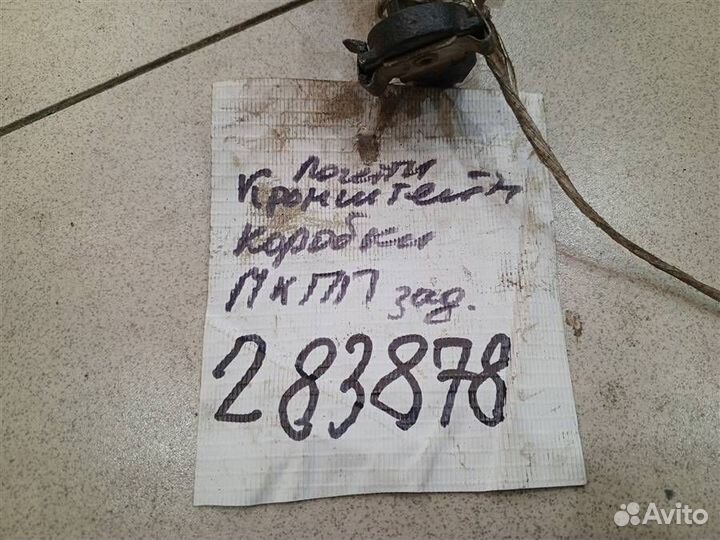 Логан
Кронштейн
коробки
МКПП зад.
283878
Avito